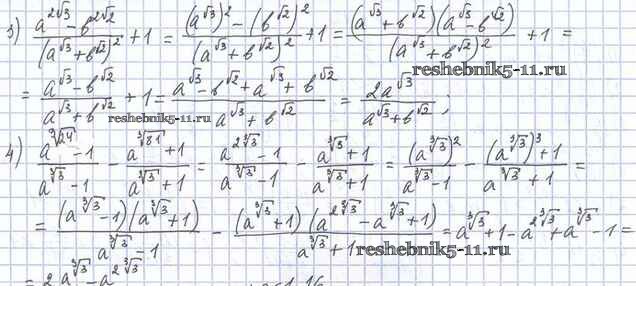 3) (a^{2√3} − b^{2√2})/(a^{√3} + b^{√2})^2 + 1 = ((a^{√3})^2 − (b^{√2})^2)/(a^{√3} + b^{√2})^2 + 1 = ((a^{√3} + b^{√2})(a^{√3} − b^{√2}))/(a^{√3} + b^{√2})^2 + 1 =
reshebnik5-11.ru
= (a^{√3} − b^{√2})/(a^{√3} + b^{√2}) + 1 = (a^{√3} − b^{√2} + a^{√3} + b^{√2})/(a^{√3} + b^{√2}) = 2a^{√3}/(a^{√3} + b^{√2});
reshebnik5-11.ru
4) (a^{∛24} − 1)/(a^{∛3} − 1) − (a^{∛81} + 1)/(a^{∛3} + 1) = (a^{2∛3} − 1)/(a^{∛3} − 1) − (a^{∛3} + 1)/(a^{∛3} + 1) = (a^{∛3})^2/(a^{∛3} − 1) − ((a^{∛3})^3 + 1)/(a^{∛3} + 1) =
= ((a^{∛3} − 1)(a^{∛3} + 1))/(a^{∛3} − 1) − ((a^{∛3} + 1)(a^{2∛3} − a^{∛3} + 1))/(a^{∛3} + 1) = a^{∛3} + 1 − a^{2∛3} + a^{∛3} − 1 =
reshebnik5-11.ru
= 2a^{∛3} − a^{2∛3}